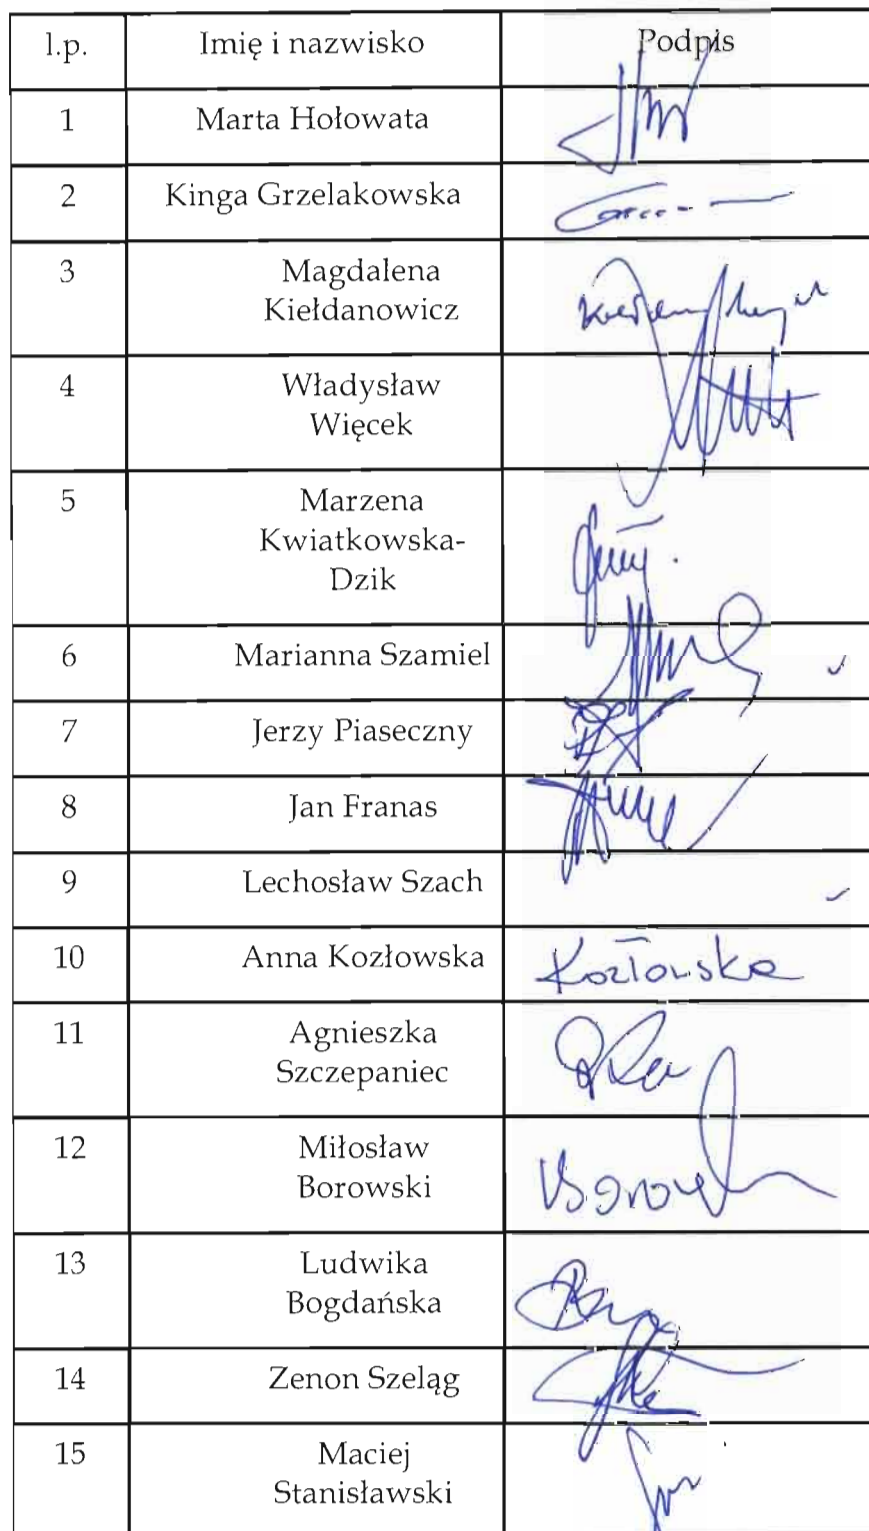 l.p. Imię i nazwisko Podpis
1 Marta Hołowata
2 Kinga Grzelakowska
3 Magdalena
Kiełdanowicz
4 Władysław
Więcek
5 Marzena
Kwiatkowska-
Dzik
6 Marianna Szamiel
7 Jerzy Piaseczny
8 Jan Franas
9 Lechosław Szach
10 Anna Kozłowska Kozłowska
11 Agnieszka
Szczepaniec
12 Miłosław
Borowski
13 Ludwika
Bogdańska
14 Zenon Szeląg
15 Maciej
Stanisławski